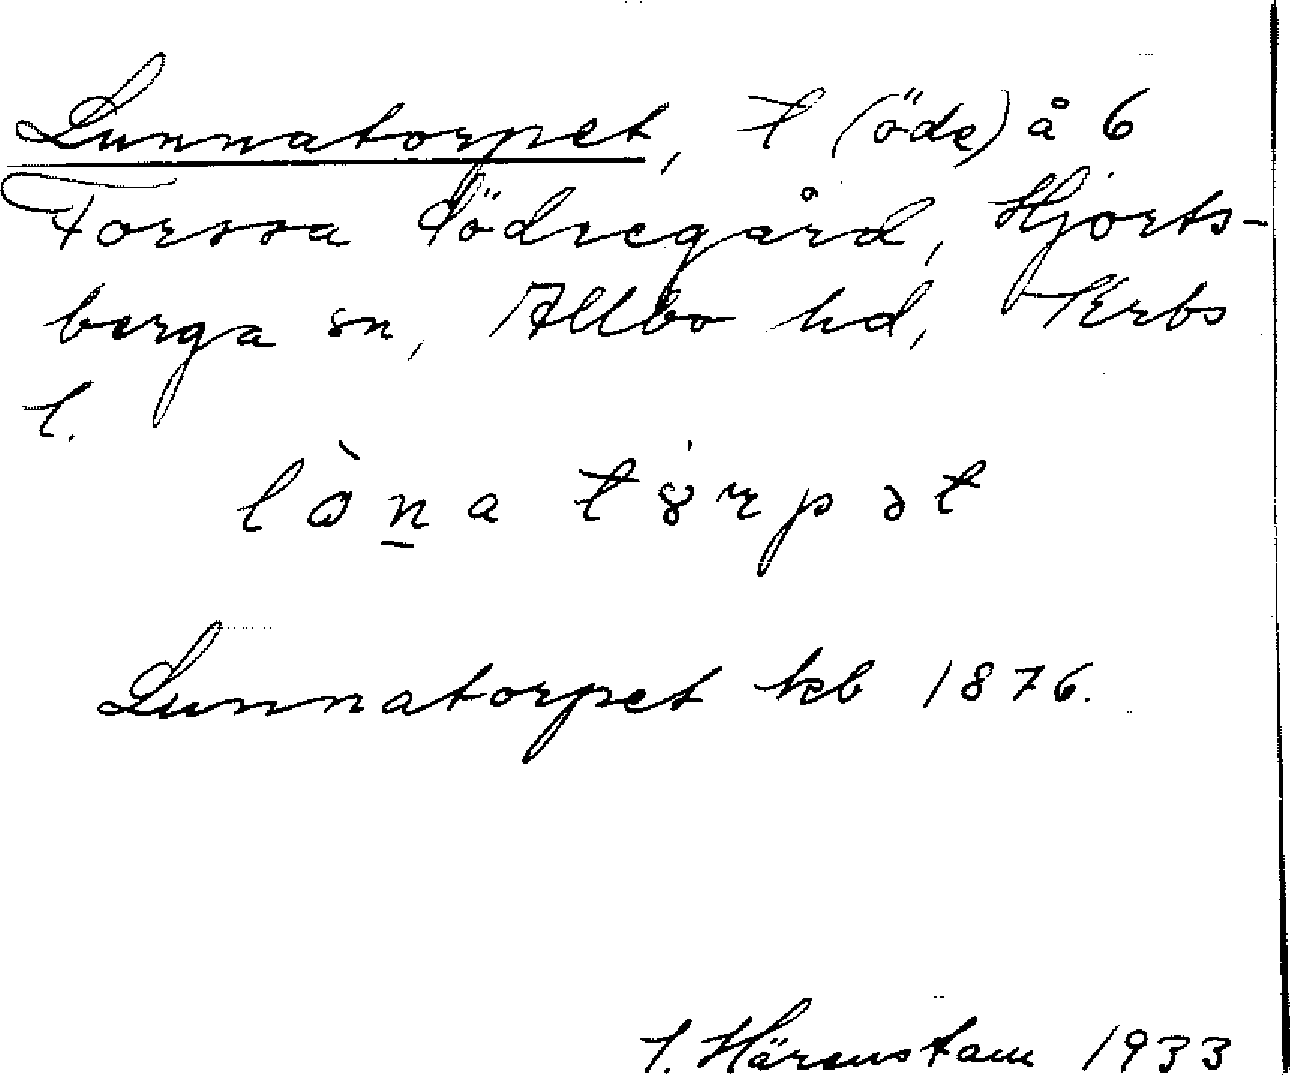 Lunnatorpet, t (öde) å 6
Forssa Södregård, Hjorts-
berga sn, Allbo hd, Krbs
l.
Lunnatorpet kb 1876.
Härenstam 1933